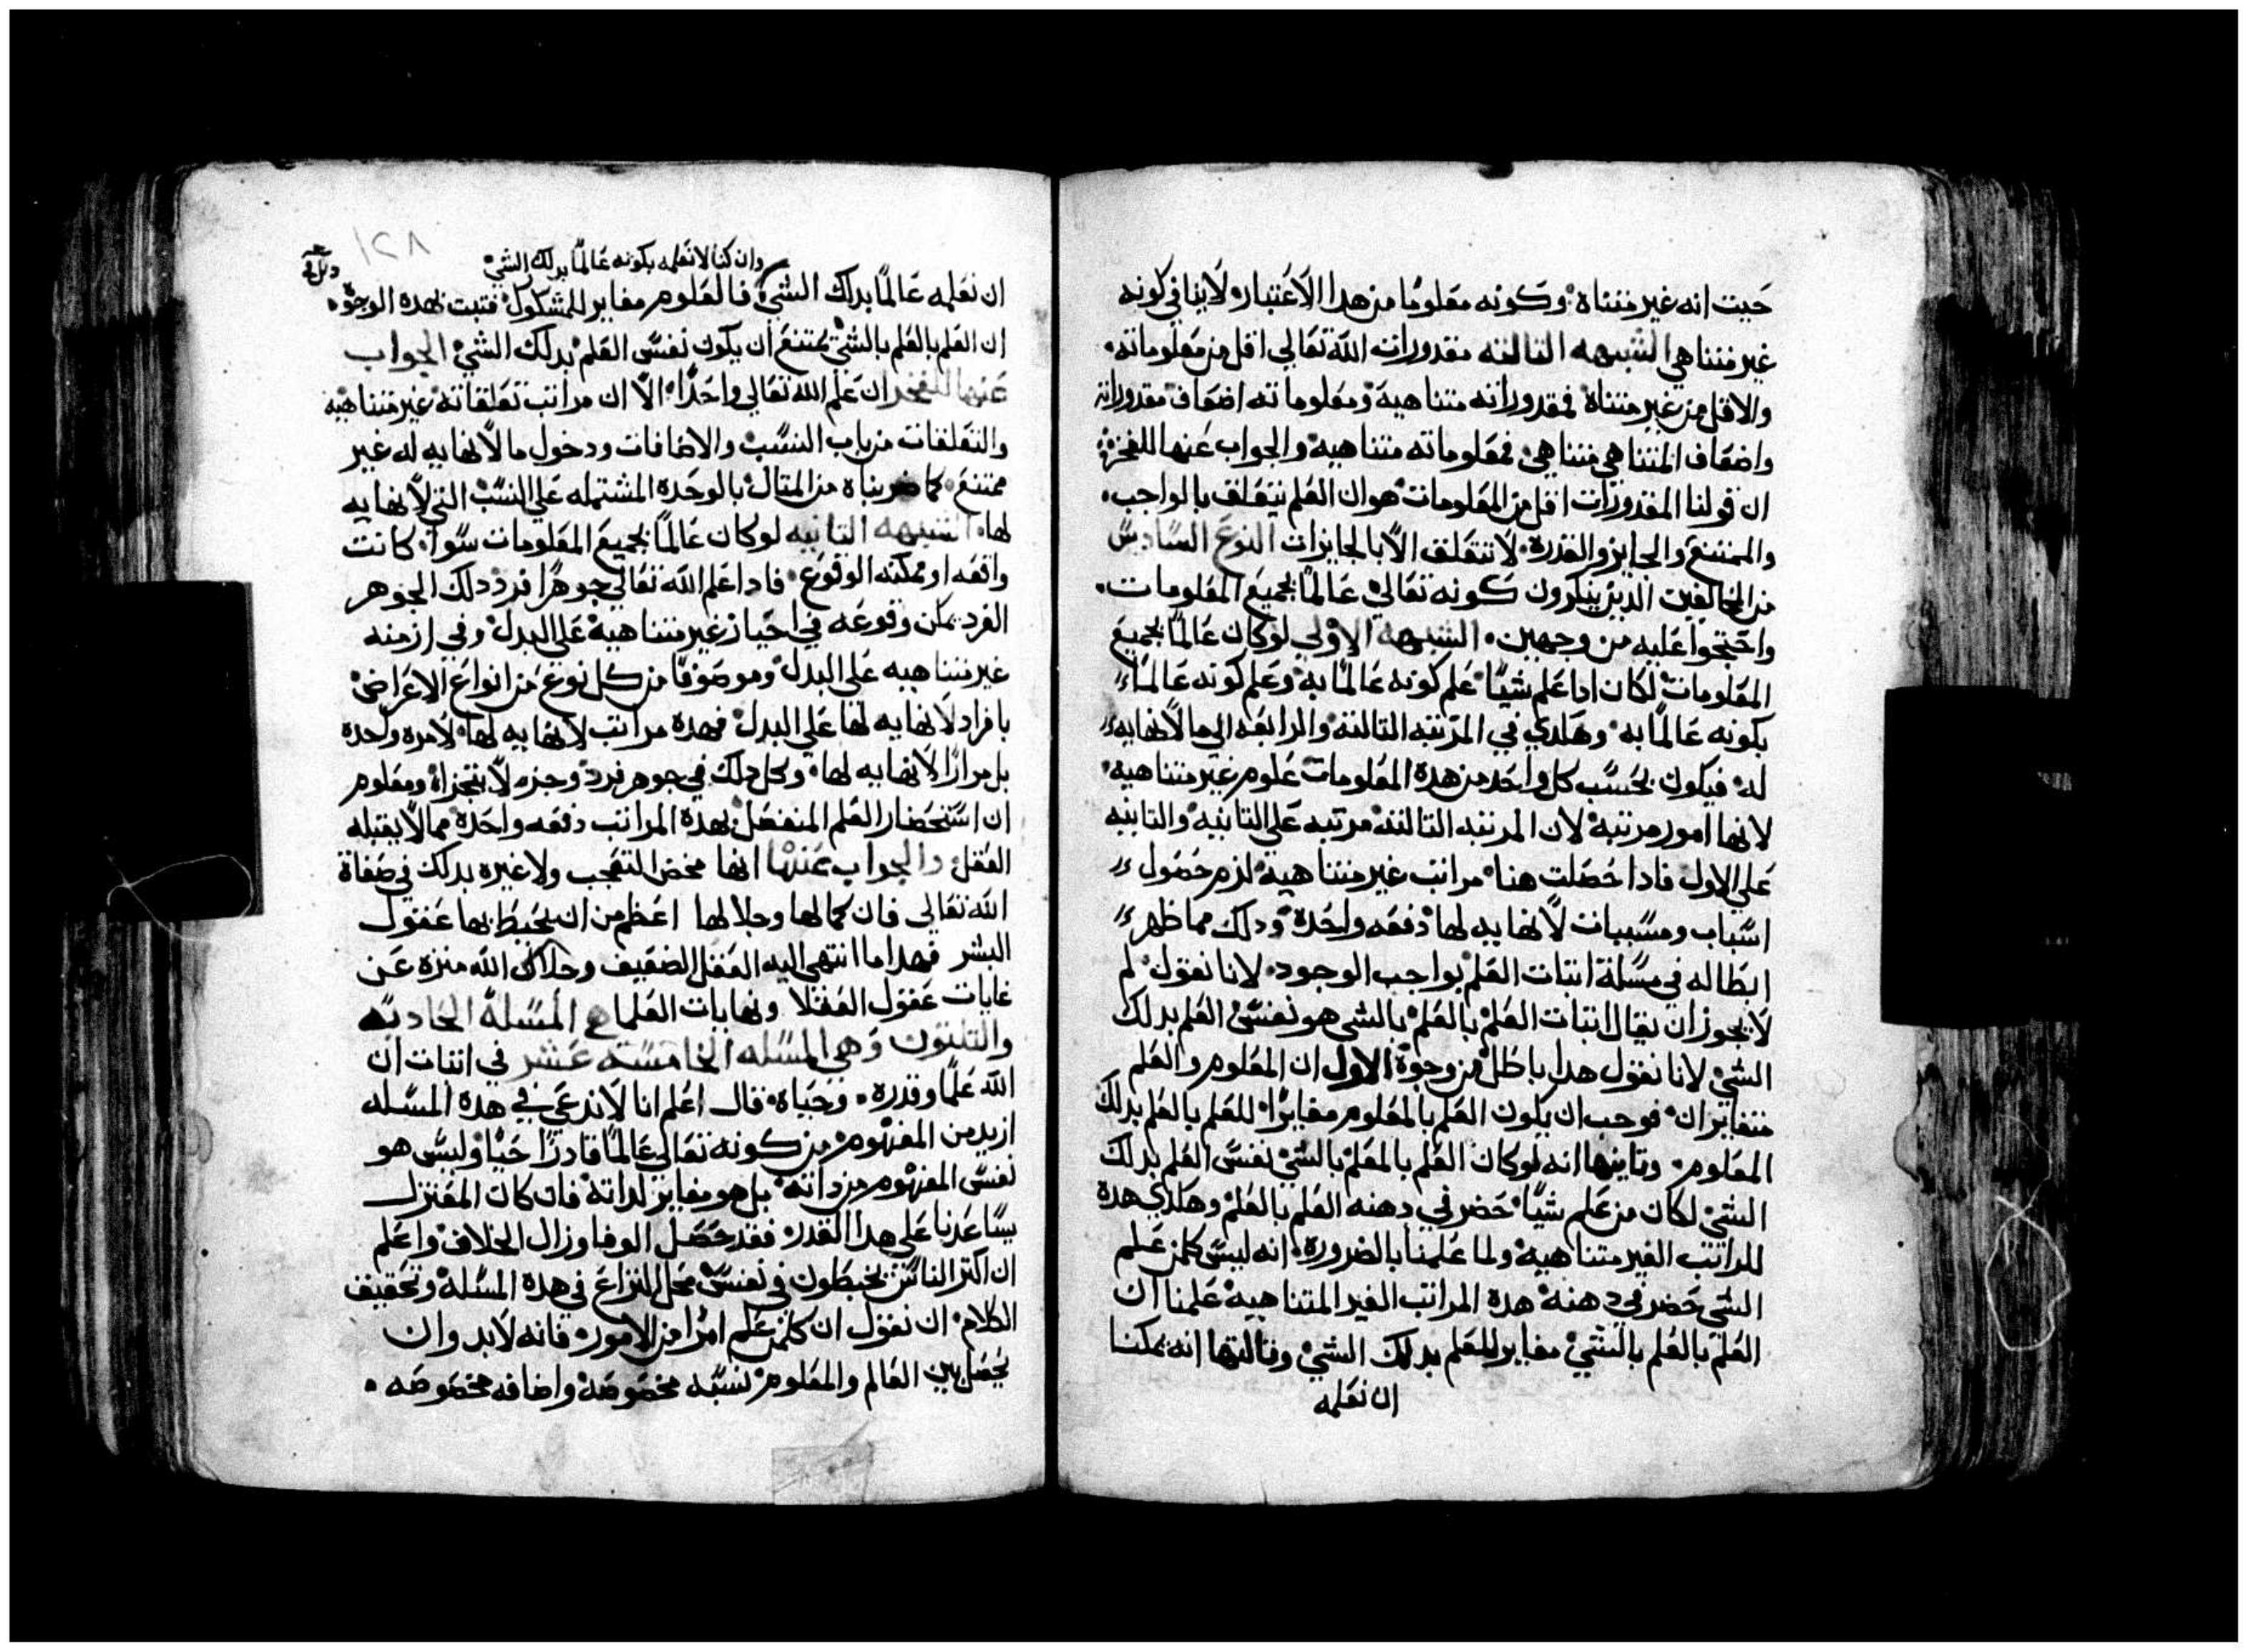 حيت انه غير متناه وكونه معلومًا من هدا الاعتبار لاينافي كونه
غير متناهي الشبهه التالته مقدورات الله تعالي اقل من معلوماته
والاقل من غير متناه فمقدوراته متناهية ومعلوماته اضعاف مقدوراته
واضعاف المتناهي متناهي فمعلوماته متناهية والجواب عنها للفخر
ان قولنا المقدورات اقل من المعلومات هو ان العلم يتعلق بالواجب
والممتنع والجايز والقدرة لاتتعلق الا بالجايزات النوع السادس
من المخالفين الدين ينكرون كونه تعالي عالمًا بجميع المعلومات
واحتجوا عليه من وجهين الشبهة الاولي لو كان عالمًا بجميع
المعلومات لكان ادا علم شيًا علم كونه عالمًا به وعلم كونه عالمًا
بكونه عالمًا به وهكدي في المرتبه التالته والرابعه الي ما لانهايه
له فيكون بحسب كل واحد من هده المعلومات علوم غير متناهيه
لانها امور مرتبة لان المرتبه التالتة مرتبه علي التانيه والتانيه
علي الاول فادا حصلت هنا مراتب غير متناهية لزم حصول
اسباب ومسببات لانهايه لها دفعه واحدة ودلك مما ظهر
ابطاله في مسلة اتبات العلم بواجب الوجود لانا نقول لم
لايجوز ان يقال اتبات العلم بالعلم بالشي هو نفس العلم بدلك
الشي لانا نقول هدا باطل من وجوة الاول ان المعلوم والعلم
متغايران فوجب ان يكون العلم بالمعلوم مغايرًا للعلم بالعلم بدلك
المعلوم وتانيها انه لو كان العلم بالعلم بالشي نفس العلم بدلك
الشي لكان من علم شيًا حضر في دهنه العلم بالعلم وهكدي هدة
المراتب الغير متناهية ولما علمنا بالضرورة انه ليس كلمن علم
الشي حضر في دهنه هدة المراتب الغير المتناهية علمنا ان
العلم بالعلم بالشي مغاير للعلم بدلك الشي وتالتها انه يمكننا
ان نعلمه
١٢٨
وان كنا لانعلمه بكونه عالمًا بدلك الشي
ان نعلمه عالمًا بدلك الشي فالمعلوم مغاير للمشكوك فتبت بهده الوجوه
ان العلم بالعلم بالشي يمتنع ان يكون نفس العلم بدلك الشي الجواب
عنها للفخر ان علم الله تعالي واحدًا الا ان مراتب تعلقاته غير متناهية
والتعلقات من باب النسب والاضافات ودخول ما لانهايه له غير
ممتنع كما ضربناه من المتال بالوحدة المشتمله علي النسب التي لانهايه
لها الشبهه التانيه لو كان عالمًا بجميع المعلومات سوا كانت
واقعه او ممكنه الوقوع فادا علم الله تعالي جوهرًا فرد دلك الجوهر
الفرد يمكن وقوعه في احياز غير متناهية علي البدل وفي ازمنه
غير متناهيه علي البدل وموصوفًا من كل نوع من انواع الاعراض
بافراد لانهايه لها علي البدل فهدة مراتب لانهايه لها لامرة واحدة
بل مرارًا لانهايه لها وكل دلك في جوهر فرد وجزء لايتجزاء ومعلوم
ان استحضار العلم المنفصل بهدة المراتب دفعه واحدة مما لايقبله
العقل والجواب عنها انها محض التعجب ولاغيره بدلك في صفاة
الله تعالي فان كمالها وجلالها اعظم من ان يحيط بها عقول
البشر فهدا ما انتهي اليه العقل الضعيف وجلال الله منزه عن
غايات عقول العقلا ونهايات العلما المسلة الحاديه
والتلتون وهي المسله الخامسة عشر في اتبات ان
الله علمًا وقدرة وحياة قال اعلم انا لاندعي في هدة المسله
ازيد من المفهوم من كونه تعالي عالمًا قادرًا حيًا وليس هو
نفس المفهوم من داته بل هو مغاير لداته فان كان المعتزل
يساعدنا علي هدا القدر فقد حصل الوفا وزال الخلاف واعلم
ان اكتر الناس يخبطون في نفس محل النزاع في هدة المسلة وتحقيق
الكلام ان نقول ان كلمن علم امرًا من الامور فانه لابد وان
يحصل بين العالم والمعلوم نسبه مخصوصة واضافه مخصوصه